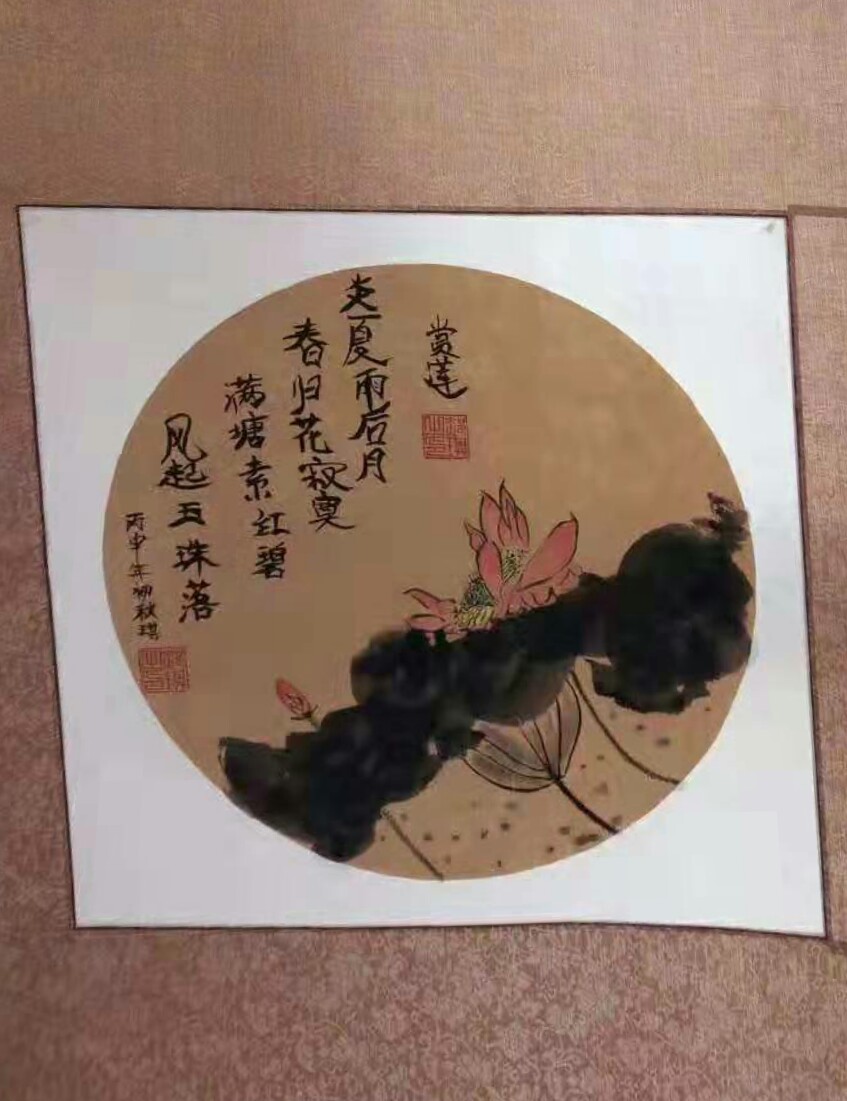 赏莲
炎夏雨后月
春归花寂寞
满塘素红碧
风起玉珠落
丙申年初秋琪